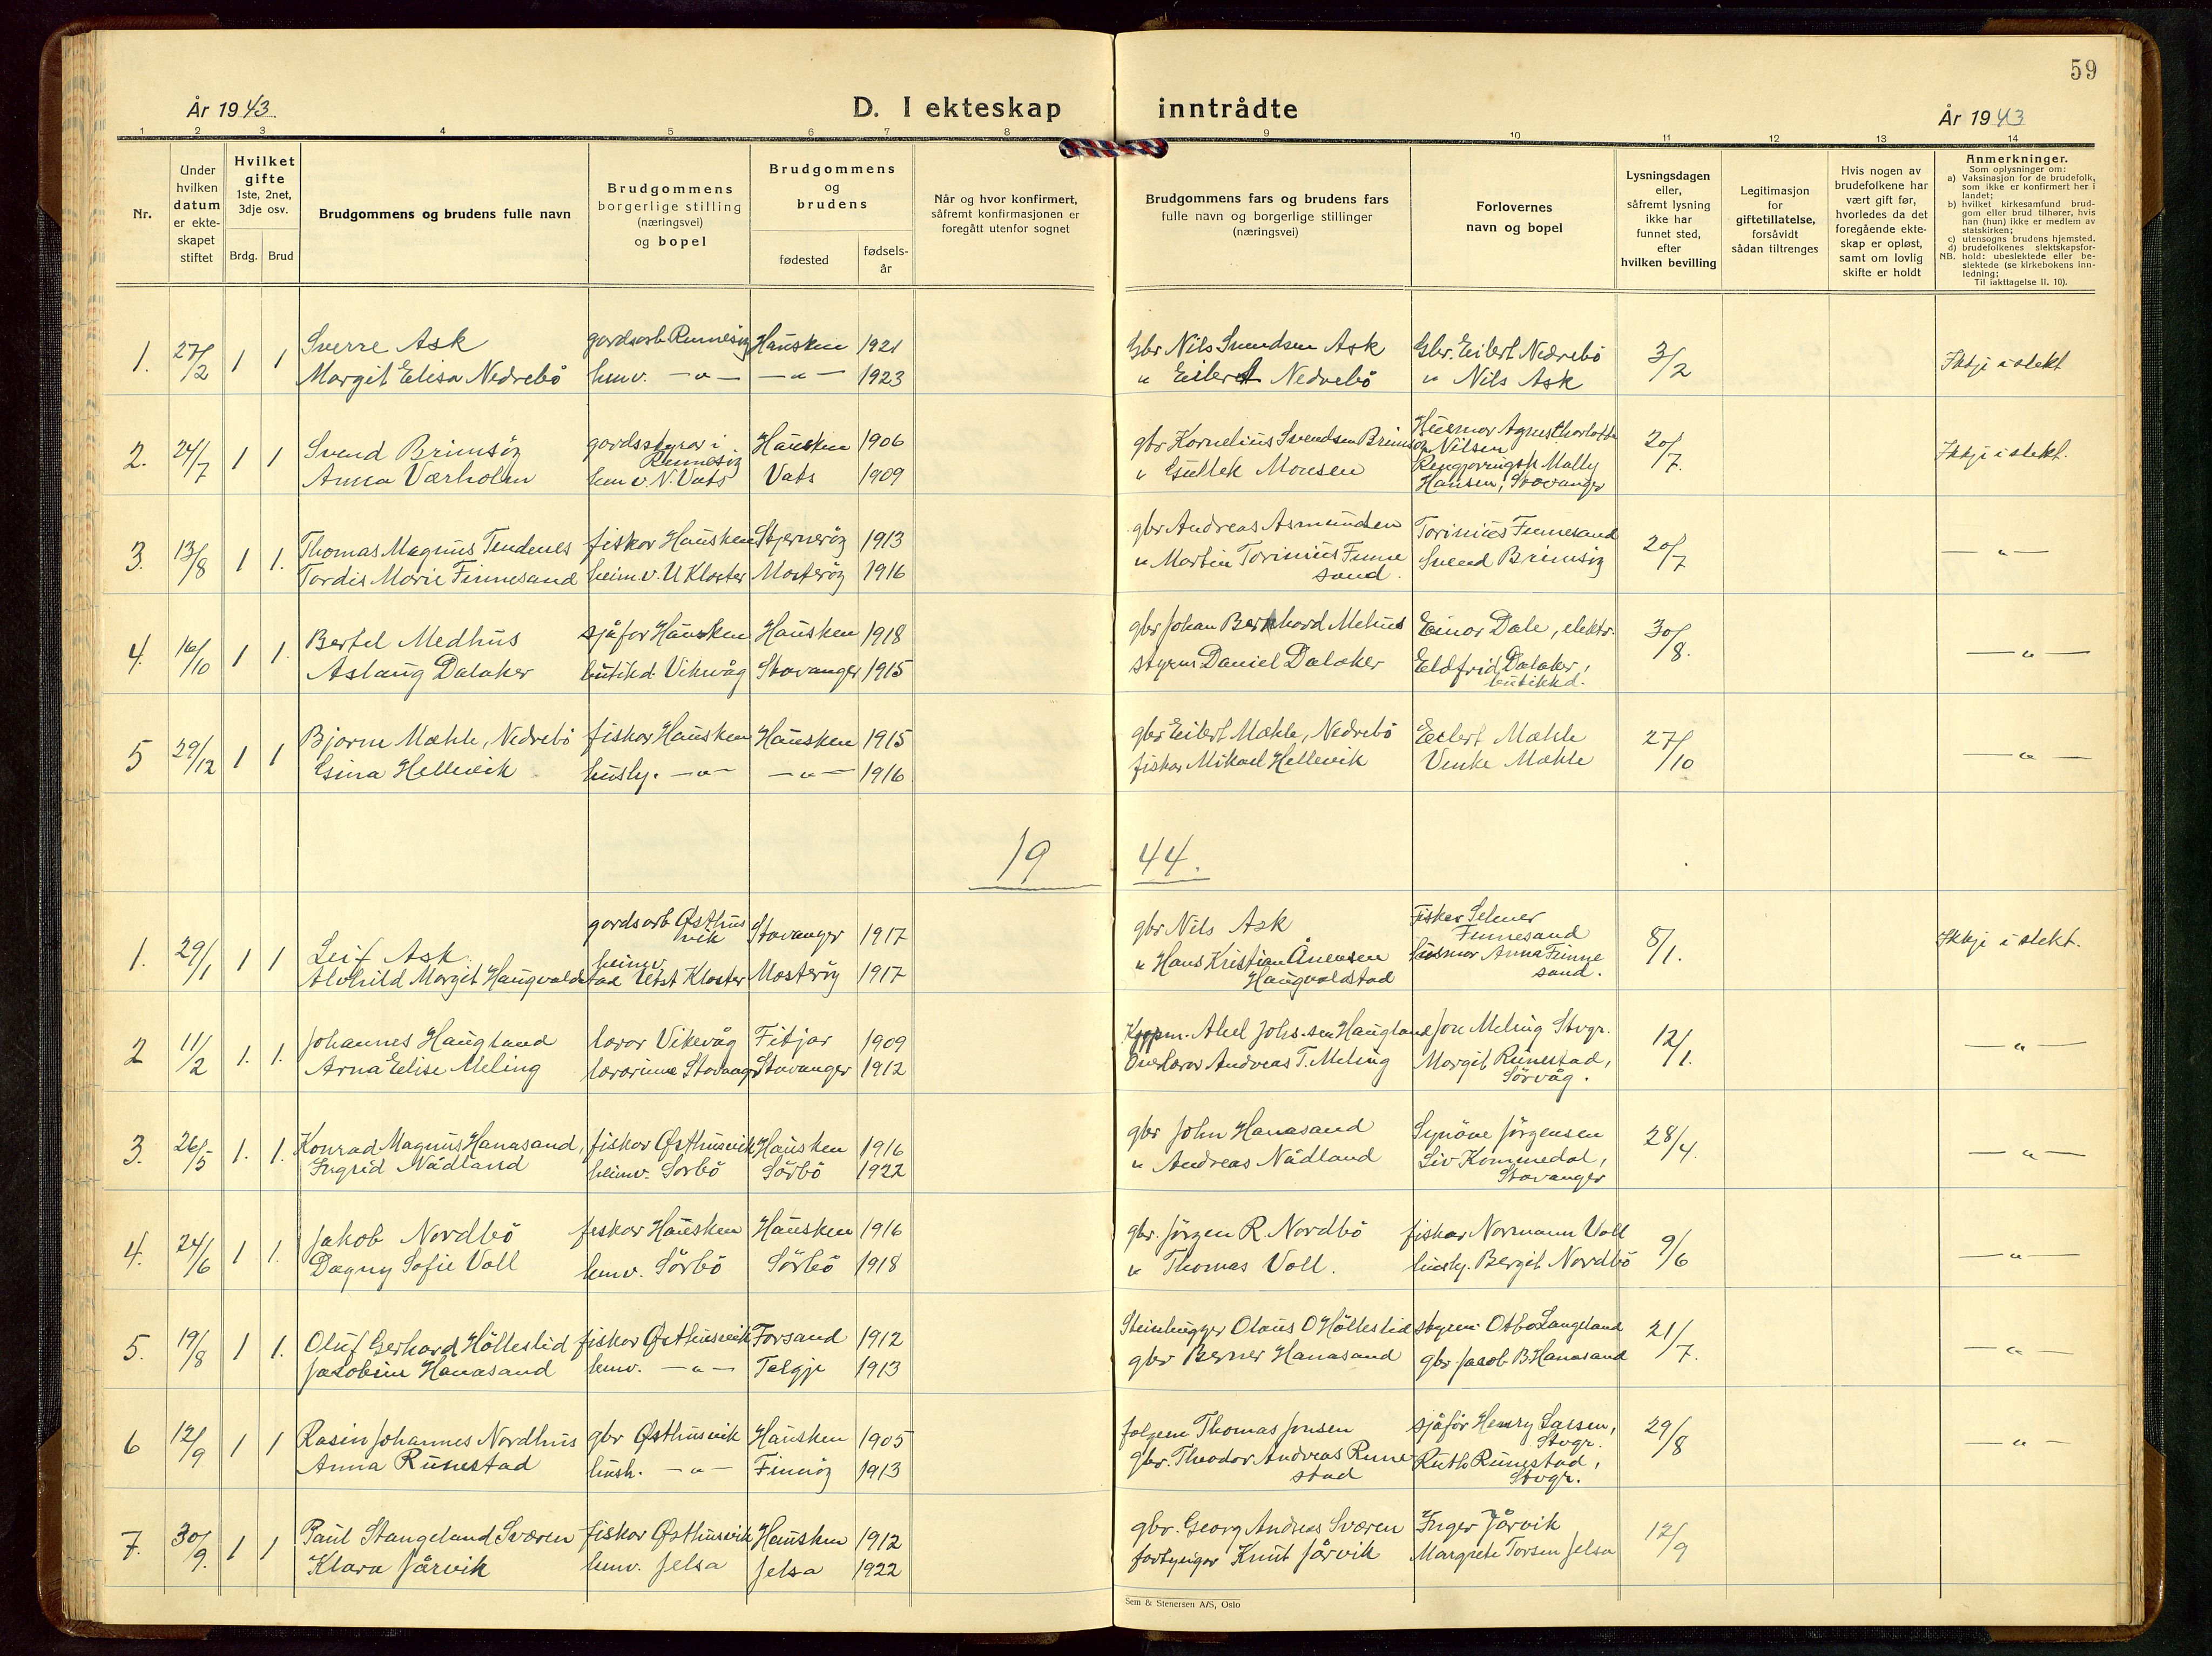 59
År 1943.
D. I ekteskap
inntrådte
År 1943
1 2 3 4 5 6 7 8 9 10 11 12 13 14
Nr.
Under hvilken datum er ekte-skapet stiftet
Hvilket gifte
1ste, 2net, 3dje osv.
Brdg. Brud
Brudgommens og brudens fulle navn
Brudgommens borgerlige stilling (næringsvei) og bopel
Brudgommens og brudens
fødested
fødsels-år
Når og hvor konfirmert, såfremt konfirmasjonen er foregått utenfor sognet
Brudgommens fars og brudens fars fulle navn og borgerlige stillinger (næringsvei)
Forlovernes navn og bopel
Lysningsdagen eller, såfremt lysning ikke har funnet sted, efter hvilken bevilling
Legitimasjon for giftetillatelse, forsåvidt sådan tiltrenges
Hvis nogen av brudefolkene har vært gift før, hvorledes da det foregående ekte-skap er opløst, samt om lovlig skifte er holdt
Anmerkninger.
Som oplysninger om:
a) Vaksinasjon for de brudefolk, som ikke er konfirmert her i landet;
b) hvilket kirkesamfund brud-gom eller brud tilhører, hvis han (hun) ikke er medlem av statskirken;
c) utensogns brudens hjemsted.
d) brudefolkenes slektskapsfor-hold: ubeslektede eller be-slektede (se kirkebokens inn-ledning;
NB.
Til iakttagelse II. 10).
1. 27/2 1 1 Sverre Ask gardsarb Rennesøy Hausken 1921 Gbr Nils Svendsen Ask Gbr. Eilert Nedrebö 3/2 Ikkje i slekt
Margit Elisa Nedrebö heimv. — " — — " — 1923 " Eilert Nedrebö " Nils Ask
2. 24/7 1 1 Svend Brimsöy gardsstyrar i Rennesöy Hausken 1906 gbr Kornelius Svendsen Brimsöy Husmor Agnes Charlotte Nilsen 20/7. Ikkje i slekt.
Anna Værholm heimv. N. Vats Vats 1909 " Gullek Monsen Rengjöringsh. Mally Hansen, Stavanger
3. 13/8 1 1. Thomas Magnus Tendenes fiskar Hausken Sjernaröy 1913 gbr Andreas Asmundsen Torinius Finnesand 20/7 — " —
Tordis Marie Finnesand heim.v. U Kloster Mosteröy 1916 " Martin Torinius Finnesand. Svend Brimsöy
4. 16/10 1 1. Bertel Medhus sjåför Hausken Hausken 1918 gbr Johan Bernhard Mehus Einar Dale, elektr. 30/8. — " —
Aslaug Dalaker butikkd. Vikevåg Stavanger 1915 styrm Daniel Dalaker Eldfrid Dalaker, butikkd.
5 29/12 1 1 Bjarne Mæhle, Nedrebö fiskar Hausken Hausken 1915 gbr Eilert Mæhle, Nedrebö Eilert Mæhle 27/10 — " —
Gina Hellevik hushj. — " — — " — 1916 fiskar Mikael Hellevik Venke Mæhle
19 44.
1. 29/1 1 1 Leif Ask gardsarb Østhusvik Stavanger 1917 gbr Nils Ask Fisker Selmer Finnesand 8/1. Ikkje i slekt.
Alvhild Margit Haugvaldstad heimv. Utst Kloster Mosteröy 1917 " Hans Kristian Ånensen Haugvaldstad husmor Anna Finnesand.
2 11/2 1. 1. Johannes Haugland lærar Vikevåg Fitjar 1909 Kjøpm. Abel Johs.sen Haugland Jon Meling Stvgr. 12/1. — " —
Arna Elise Meling lærarinne Stavanger Stavanger 1912 Overlærar Andreas T. Meling Margit Runestad, Sörvåg.
3. 26/5 1. 1. Konrad Magnus Hanasand, fiskar Østhusvik Hausken 1916 gbr John Hanasand Synöve Jörgensen 28/4. — " —
Ingrid Nådland heimv. Sörbö Sörbö 1922 " Andreas Nådland Liv Kommedal, Stavanger
4. 24/6 1 1. Jakob Nordbö fiskar Hausken Hausken 1916 gbr. Jörgen R. Nordbö fiskar Normann Voll 9/6 — " —
Dagny Sofie Voll heimv. Sörbö Sörbö 1918 " Thomas Voll. hushj. Bergit Nordbö
5. 19/8 1 1. Oluf Gerhard Hölleslid fiskar Østhusvik Forsand 1912 Steinhuggar Olaus O Hölleslid styrm. Otto Langeland 21/7. — " —
Jacobine Hanasand heimv. — " — Talgje 1913 gbr Berner Hanasand gbr. Jacob B. Hanasand
6 12/9 1 1 Rasin Johannes Nordhus gbr Østhusvik Hausken 1905 folgem Thomas Jonsen sjåför Henry Larsen, Stvgr. 29/8 — " —
Anna Runestad hush. — " — Finnöy 1913 gbr. Theodor Andreas Runestad Ruth Runestad, Stvgr.
7. 30/9. 1 1 Paul Stangeland Sværen fiskar Østhusvik Hausken 1912 gbr. Georg Andreas Sværen Inger Jårvik 12/9
Klara Jårvik heimv. Jelsa Jelsa 1922 fartyeigar Knut Jårvik Margrete Torsen Jelsa
Sem & Stenersen A/S, Oslo